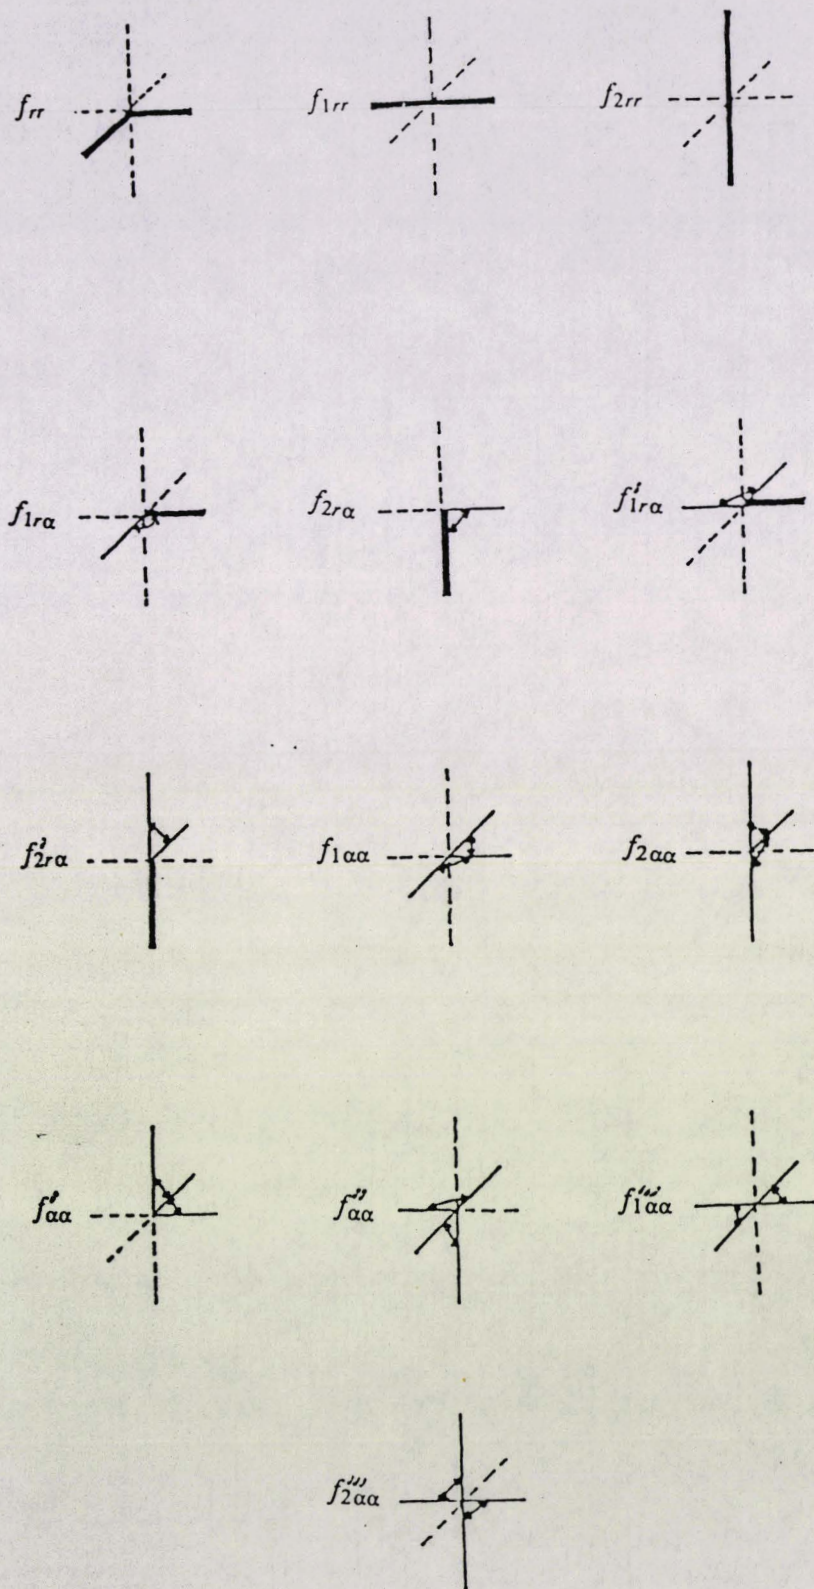 f_rr f_1rr f_2rr
f_1rα f_2rα f'_1rα
f'_2rα f_1αα f_2αα
f'_αα f''_αα f'''_1αα
f'''_2αα